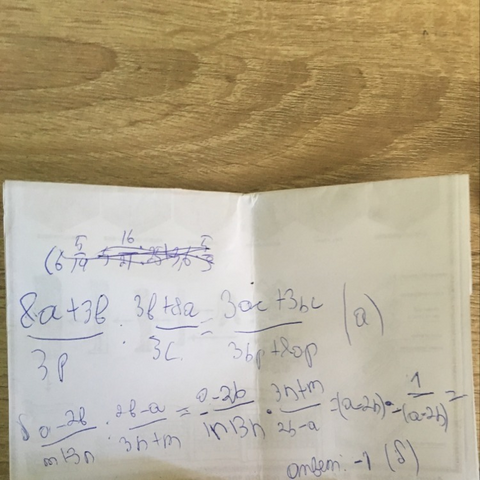 8a+3b/3p : 3b+8a/3c = 3ac+3bc/3bp+8ap (а)
б a-2b/m+3n : 2b-a/3n+m = a-2b/m+3n · 3n+m/2b-a = (a-2b) · 1/-(a-2b) =
ответ: -1 (б)